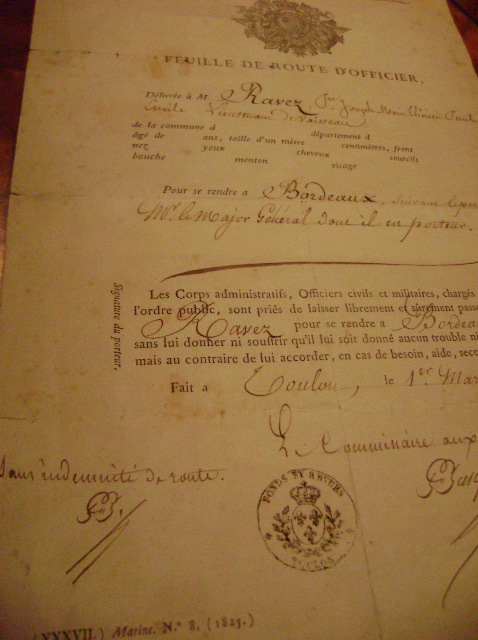 FEUILLE DE ROUTE D'OFFICIER,
Délivrée à M. Ravez, Joseph
Lieutenant de Vaisseau
de la commune d département d
âgé de ans, taille d'un mètre centimètres, front
nez yeux cheveux sourcils
bouche menton visage
Pour se rendre a Bordeaux, suivant
Mr. le Major Général dont il est porteur.
Signature du porteur.
Les Corps administratifs, Officiers civils et militaires, chargés
l'ordre public, sont priés de laisser librement et sûrement pass
Ravez pour se rendre a Bordea
sans lui donner ni souffrir qu'il lui soit donné aucun trouble ni
mais au contraire de lui accorder, en cas de besoin, aide, seco
Fait a Toulon, le 1er Mar
Le Commissaire aux
Sans indemnité de route.
TOULON
(XXXVII.) Marine. N.° 8. (1825.)